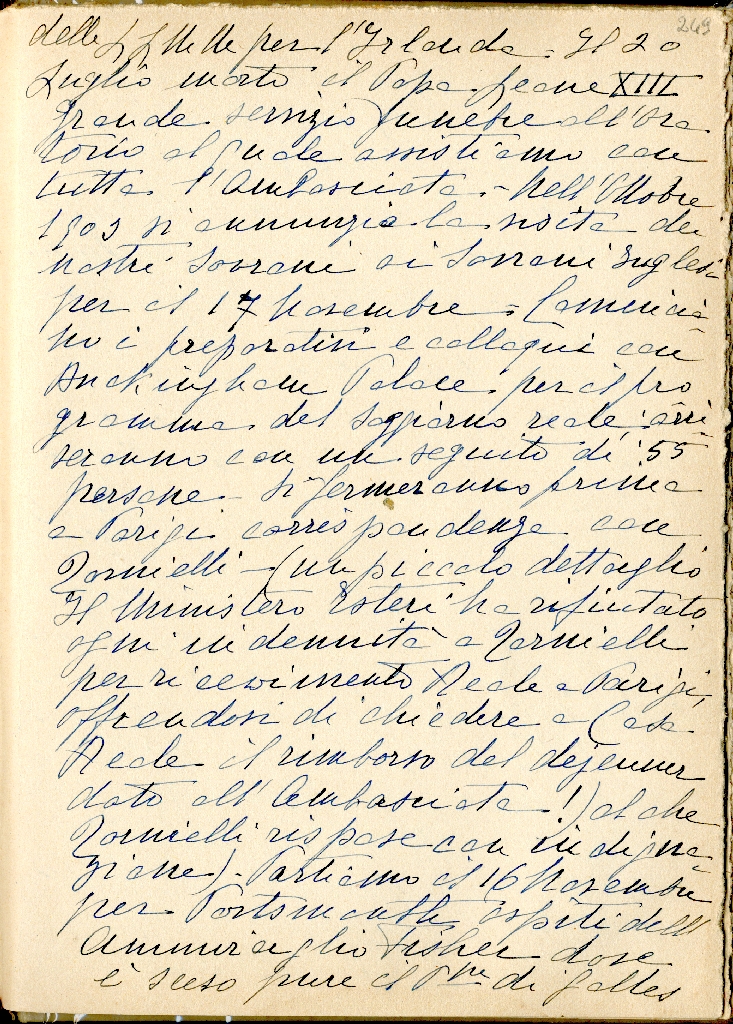 249
delle LL MM per l'Irlanda = Il 20
Luglio morto il Papa Leone XIII
grande servizio funebre all'Ora
torio al quale assistiamo con
tutta l'Ambasciata - Nell'Ottobre
1903 si annunzia la visita dei
nostri Sovrani ai Sovrani Inglesi
per il 17 Novembre = Comincia
no i preparativi e colloqui con
Buckingham Palace per il pro
gramma del soggiorno reale, arri
veranno con un seguito di 55
persone - Si fermeranno prima
a Parigi corrispondenza con
Tornielli - (un piccolo dettaglio
Il Ministero Esteri ha rifiutato
ogni indennità a Tornielli
per ricevimento Reale a Parigi,
offrendosi di chiedere a Casa
Reale il rimborso del dejeuner
dato all'Ambasciata!) al che
Tornielli rispose con indigna-
zione) - Partiamo il 16 Novembre
per Portsmouth ospiti dell'
Ammiraglio Fisher dove
è sceso pure il Pme di Galles